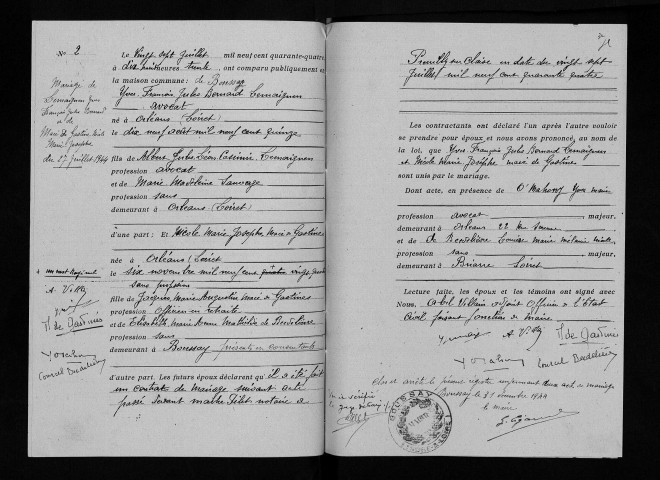 No 2
Mariage de
Lemaignen Yves
François Jules Bernard
et de
Marie de Gastines Nicole
Marie Josephe
du 27 juillet 1944
Le vingt sept juillet mil neuf cent quarante-quatre
à dix heures trente, ont comparu publiquement en
la maison commune: de Boussay
Yves François Jules Bernard Lemaignen
avocat
né à Orléans (Loiret)
le dix neuf août mil neuf cent quinze
fils de Albert Jules Léon Casimir Lemaignen
profession avocat
et de Marie Madeleine
profession sans
demeurant à Orléans (Loiret)
d'une part: Et Nicole Marie Josephe Marie de Gastines
née à Orléans (Loiret)
le six novembre mil neuf cent vingt
sans profession
fille de Jacques Marie Augustin Marie de Gastines
profession officier en retraite
et de Elisabeth Marie Anne Mathilde de
profession sans
demeurant à Boussay
d'autre part. Les futurs époux déclarent qu'il a été fait
un contrat de mariage suivant acte
passé devant maître notaire à
Preuilly sur Claise en date du vingt sept
juillet mil neuf cent quarante quatre
Les contractants ont déclaré l'un après l'autre vouloir
se prendre pour époux et nous avons prononcé, au nom de
la loi, que Yves François Jules Bernard Lemaignen
et Nicole Marie Josephe marie de Gastines
sont unis par le mariage.
Dont acte, en présence de O'Mahony Yves
profession avocat, majeur.
demeurant à Orléans 22 rue
et de Louise Marie
profession sans, majeur.
demeurant à Briare Loiret
Lecture faite, les époux et les témoins ont signé avec
Nous, Abel Villain adjoint Officier de l'Etat
Civil faisant fonction de maire.
Clos et arrêté le présent registre acte de mariage
Boussay le 31 décembre 1944
Le maire
BOUSSAY